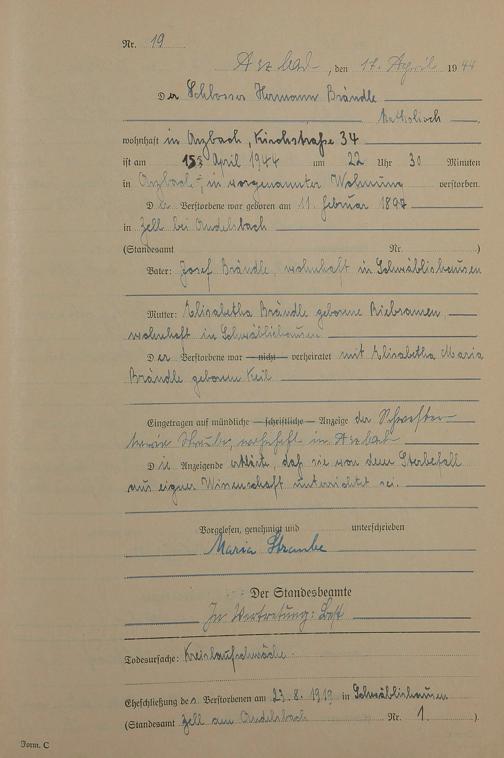 Nr. 19
Arzbach, den 17. April 1944
Der Schlosser Hermann Brändle
katholisch
wohnhaft in Arzbach, Kirchstraße 34
ist am 15. April 1944 um 22 Uhr 30 Minuten
in Arzbach, in vorgenannter Wohnung verstorben.
Der Verstorbene war geboren am 11. Februar 1897
in Zell bei Andelsbach
(Standesamt Nr. )
Vater: Josef Brändle, wohnhaft in Schwäblishausen
Mutter: Elisabetha Brändle geborene
wohnhaft in Schwäblishausen
Der Verstorbene war nicht verheiratet mit Elisabetha Maria
Brändle geborene Keil
Eingetragen auf mündliche schriftliche Anzeige der Schwester
Maria Straube, wohnhaft in Arzbach
Die Anzeigende erklärte, daß sie von dem Sterbefall
aus eigner Wissenschaft unterrichtet sei.
Vorgelesen, genehmigt und unterschrieben
Maria Straube
Der Standesbeamte
In Vertretung:
Todesursache: Kreislaufschwäche.
Eheschließung des Verstorbenen am 23.8.1919 in Schwäblishausen
(Standesamt Zell am Andelsbach Nr. 1.)
Form. C